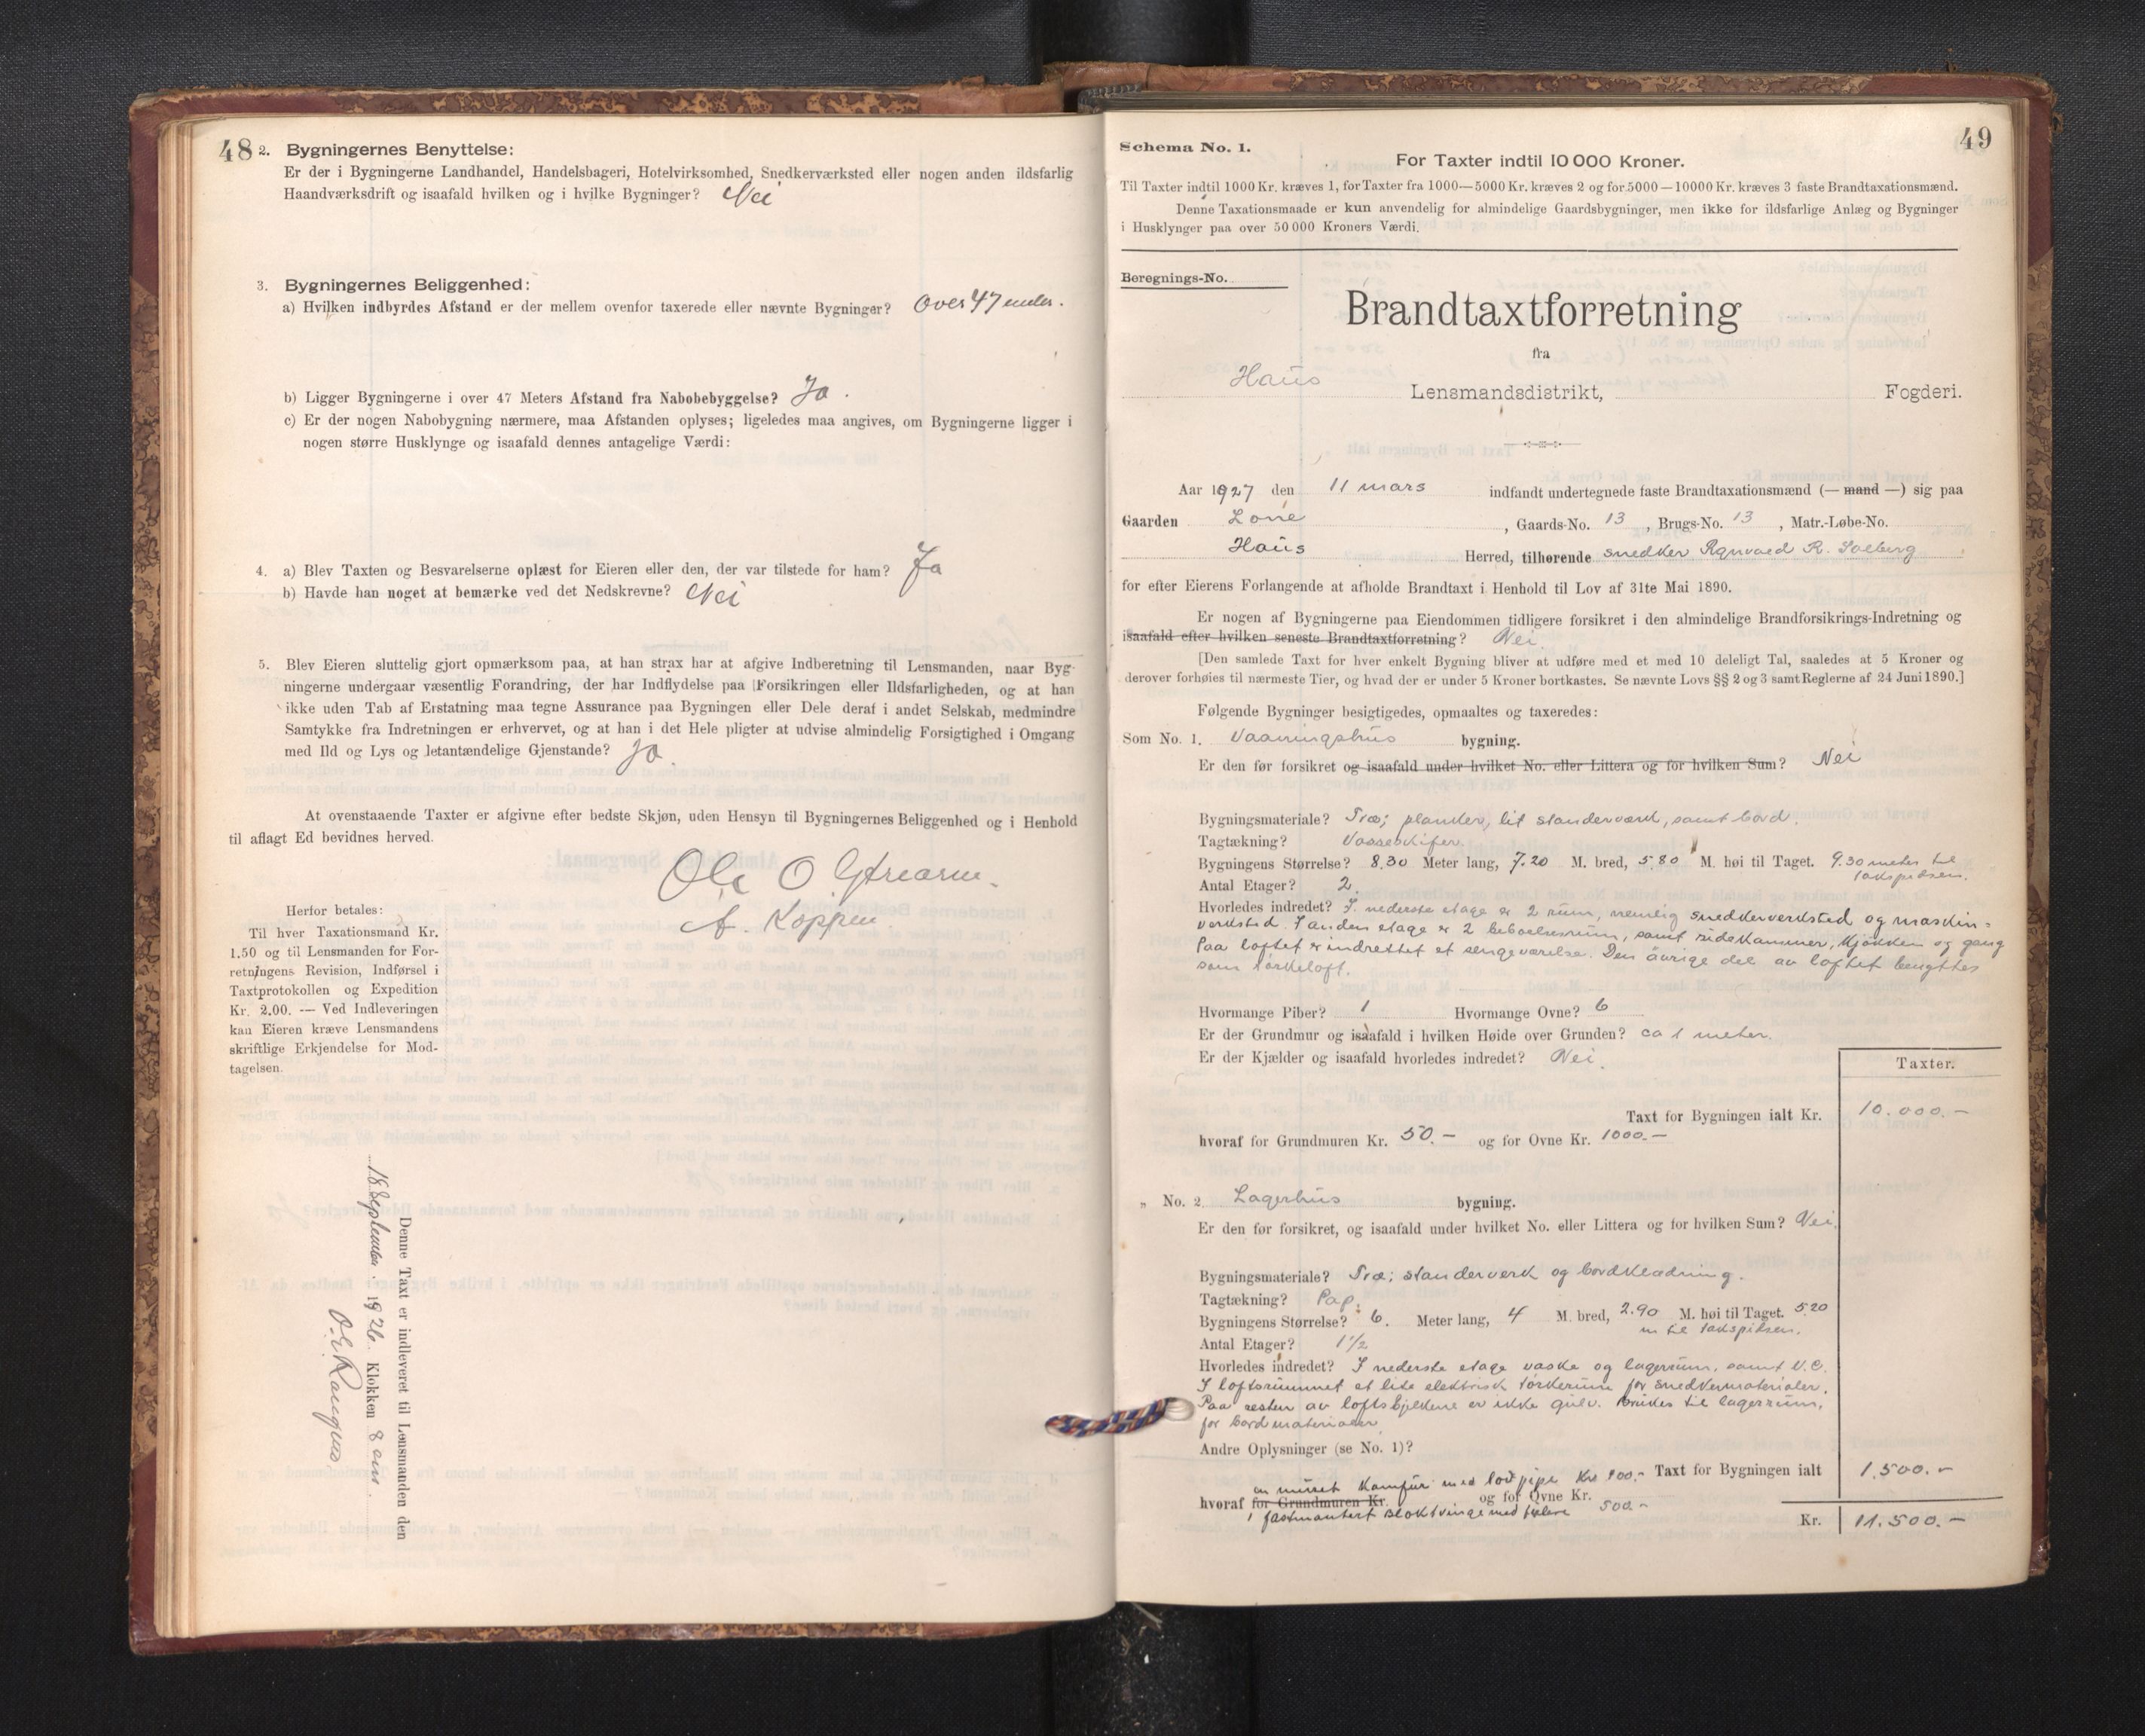 48
2. Bygningernes Benyttelse:
Er der i Bygningerne Landhandel, Handelsbageri, Hotelvirksomhed, Snedkerværksted eller nogen anden ildsfarlig
Haandværksdrift og isaafald hvilken og i hvilke Bygninger? Nei
3. Bygningernes Beliggenhed:
a) Hvilken indbyrdes Afstand er der mellem ovenfor taxerede eller nævnte Bygninger? Over 47 meter.
b) Ligger Bygningerne i over 47 Meters Afstand fra Nabobebyggelse? Ja.
c) Er der nogen Nabobygning nærmere, maa Afstanden oplyses; ligeledes maa angives, om Bygningerne ligger i
nogen større Husklynge og isaafald dennes antagelige Værdi:
4. a) Blev Taxten og Besvarelserne oplæst for Eieren eller den, der var tilstede for ham? Ja
b) Havde han noget at bemærke ved det Nedskrevne? Nei
5. Blev Eieren sluttelig gjort opmærksom paa, at han strax har at afgive Indberetning til Lensmanden, naar Byg-
ningerne undergaar væsentlig Forandring, der har Indflydelse paa Forsikringen eller Ildsfarligheden, og at han
ikke uden Tab af Erstatning maa tegne Assurance paa Bygningen eller Dele deraf i andet Selskab, medmindre
Samtykke fra Indretningen er erhvervet, og at han i det Hele pligter at udvise almindelig Forsigtighed i Omgang
med Ild og Lys og letantændelige Gjenstande? Ja
At ovenstaaende Taxter er afgivne efter bedste Skjøn, uden Hensyn til Bygningernes Beliggenhed og i Henhold
til aflagt Ed bevidnes herved.
Ole O
A. Koppen
Herfor betales:
Til hver Taxationsmand Kr.
1.50 og til Lensmanden for For-
retningens Revision, Indførsel i
Taxtprotokollen og Expedition
Kr. 2.00. — Ved Indleveringen
kan Eieren kræve Lensmandens
skriftlige Erkjendelse for Mod-
tagelsen.
Denne Taxt er indleveret til Lensmanden den
18 September 1926 Klokken 8 em.
49
Schema No. 1.
For Taxter indtil 10 000 Kroner.
Til Taxter indtil 1000 Kr. kræves 1, for Taxter fra 1000—5000 Kr. kræves 2 og for 5000—10000 Kr. kræves 3 faste Brandtaxationsmænd.
Denne Taxationsmaade er kun anvendelig for almindelige Gaardsbygninger, men ikke for ildsfarlige Anlæg og Bygninger
i Husklynger paa over 50 000 Kroners Værdi.
Beregnings-No.
Brandtaxtforretning
fra
Haus Lensmandsdistrikt, Fogderi.
Aar 1927 den 11 mars indfandt undertegnede faste Brandtaxationsmænd (— mand —) sig paa
Gaarden Lone, Gaards-No. 13, Brugs-No. 13, Matr.-Løbe-No.
Haus Herred, tilhørende snedker R. Solberg
for efter Eierens Forlangende at afholde Brandtaxt i Henhold til Lov af 31te Mai 1890.
Er nogen af Bygningerne paa Eiendommen tidligere forsikret i den almindelige Brandforsikrings-Indretning og
isaafald efter hvilken seneste Brandtaxtforretning? Nei
[Den samlede Taxt for hver enkelt Bygning bliver at udføre med et med 10 deleligt Tal, saaledes at 5 Kroner og
derover forhøies til nærmeste Tier, og hvad der er under 5 Kroner bortkastes. Se nævnte Lovs §§ 2 og 3 samt Reglerne af 24 Juni 1890.]
Følgende Bygninger besigtigedes, opmaaltes og taxeredes:
Som No. 1. Vaaningshus bygning.
Er den før forsikret og isaafald under hvilket No. eller Littera og for hvilken Sum? Nei
Bygningsmateriale? Træ; planker, lit standerverk, samt bord.
Tagtækning? Vosseskifer.
Bygningens Størrelse? 8.30 Meter lang, 7.20 M. bred, 5.80 M. høi til Taget. 9.30 meter til
takspidsen.
Antal Etager? 2
Hvorledes indredet? I nederste etage er 2 rum, nemlig snedkerverksted og maskin-
verksted. I anden etage er 2 beboelsesrum, samt sidekammer, kjøkken og gang
Paa loftet er indrettet et sengeværelse. Den øvrige del av loftet benyttes
som tørkeloft.
Hvormange Piber? 1 Hvormange Ovne? 6
Er der Grundmur og isaafald i hvilken Høide over Grunden? ca 1 meter.
Er der Kjælder og isaafald hvorledes indredet? Nei.
Taxter.
Taxt for Bygningen ialt Kr. 10.000.-
hvoraf for Grundmuren Kr. 50.- og for Ovne Kr. 1000.-
„ No. 2 Lagerhus bygning.
Er den før forsikret, og isaafald under hvilket No. eller Littera og for hvilken Sum? Nei.
Bygningsmateriale? Træ; standerverk og bordklædning.
Tagtækning? Pap.
Bygningens Størrelse? 6. Meter lang, 4 M. bred, 2.90 M. høi til Taget. 5.20
m til takspidsen.
Antal Etager? 1½
Hvorledes indredet? I nederste etage vaske og lagerrum, samt V.C.
I loftsrummet et lite elektrisk tørkerum for snedkermaterialer.
Paa resten av loftsbjelkene er ikke gulv. Brukes til lagerrum,
for bordmaterialer
Andre Oplysninger (se No. 1)?
en muret Komfur med lodpipe Kr 400.- Taxt for Bygningen ialt 1.500.-
hvoraf for Grundmuren Kr. og for Ovne Kr. 500.-
1 fastmontert Bloktvinge med
Kr. 11.500.-